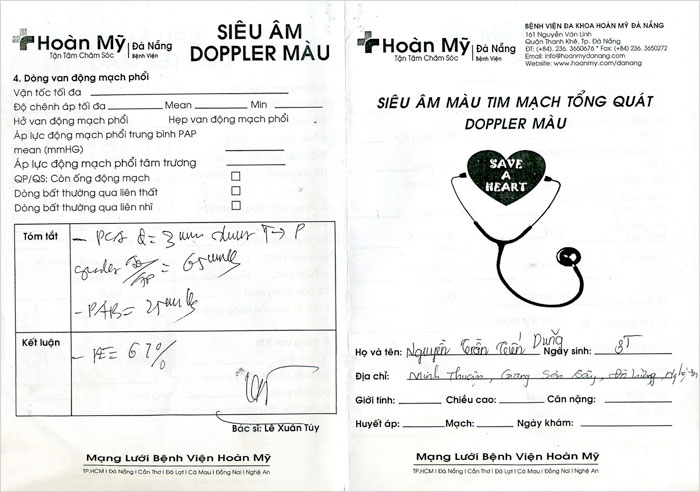 Hoàn Mỹ
Đà Nẵng
Bệnh Viện
Tận Tâm Chăm Sóc
SIÊU ÂM
DOPPLER MÀU
4. Dòng van động mạch phổi
Vận tốc tối đa
Độ chênh áp tối đa Mean Min
Hở van động mạch phổi Hẹp van động mạch phổi
Áp lực động mạch phổi trung bình PAP
mean (mmHG)
Áp lực động mạch phổi tâm trương
QP/QS: Còn ống động mạch
Dòng bất thường qua liên thất
Dòng bất thường qua liên nhĩ
Tóm tắt
- PCA d = 3 mm shunt T → P
= 65 mmHg
= 25 mmHg
Kết luận
= 67%
Bác sĩ: Lê Xuân Túy
Mạng Lưới Bệnh Viện Hoàn Mỹ
TP.HCM | Đà Nẵng | Cần Thơ | Đà Lạt | Cà Mau | Đồng Nai | Nghệ An
Hoàn Mỹ
Đà Nẵng
Bệnh Viện
Tận Tâm Chăm Sóc
BỆNH VIỆN ĐA KHOA HOÀN MỸ ĐÀ NẴNG
161 Nguyễn Văn Linh
Quận Thanh Khê, Tp. Đà Nẵng
ĐT: (+84). 236. 3650676 * Fax: (+84) 236. 3650272
Email: info@hoanmydanang.com
Website: www.hoanmy.com/danang
SIÊU ÂM MÀU TIM MẠCH TỔNG QUÁT
DOPPLER MÀU
SAVE
A
HEART
Họ và tên: Nguyễn Trần Tiến Dũng Ngày sinh: 8T
Địa chỉ: Minh Thuận, Giang Sơn Đông, Đô Lương, Nghệ An
Giới tính: Chiều cao: Cân nặng:
Huyết áp: Mạch: Ngày khám:
Mạng Lưới Bệnh Viện Hoàn Mỹ
TP.HCM | Đà Nẵng | Cần Thơ | Đà Lạt | Cà Mau | Đồng Nai | Nghệ An